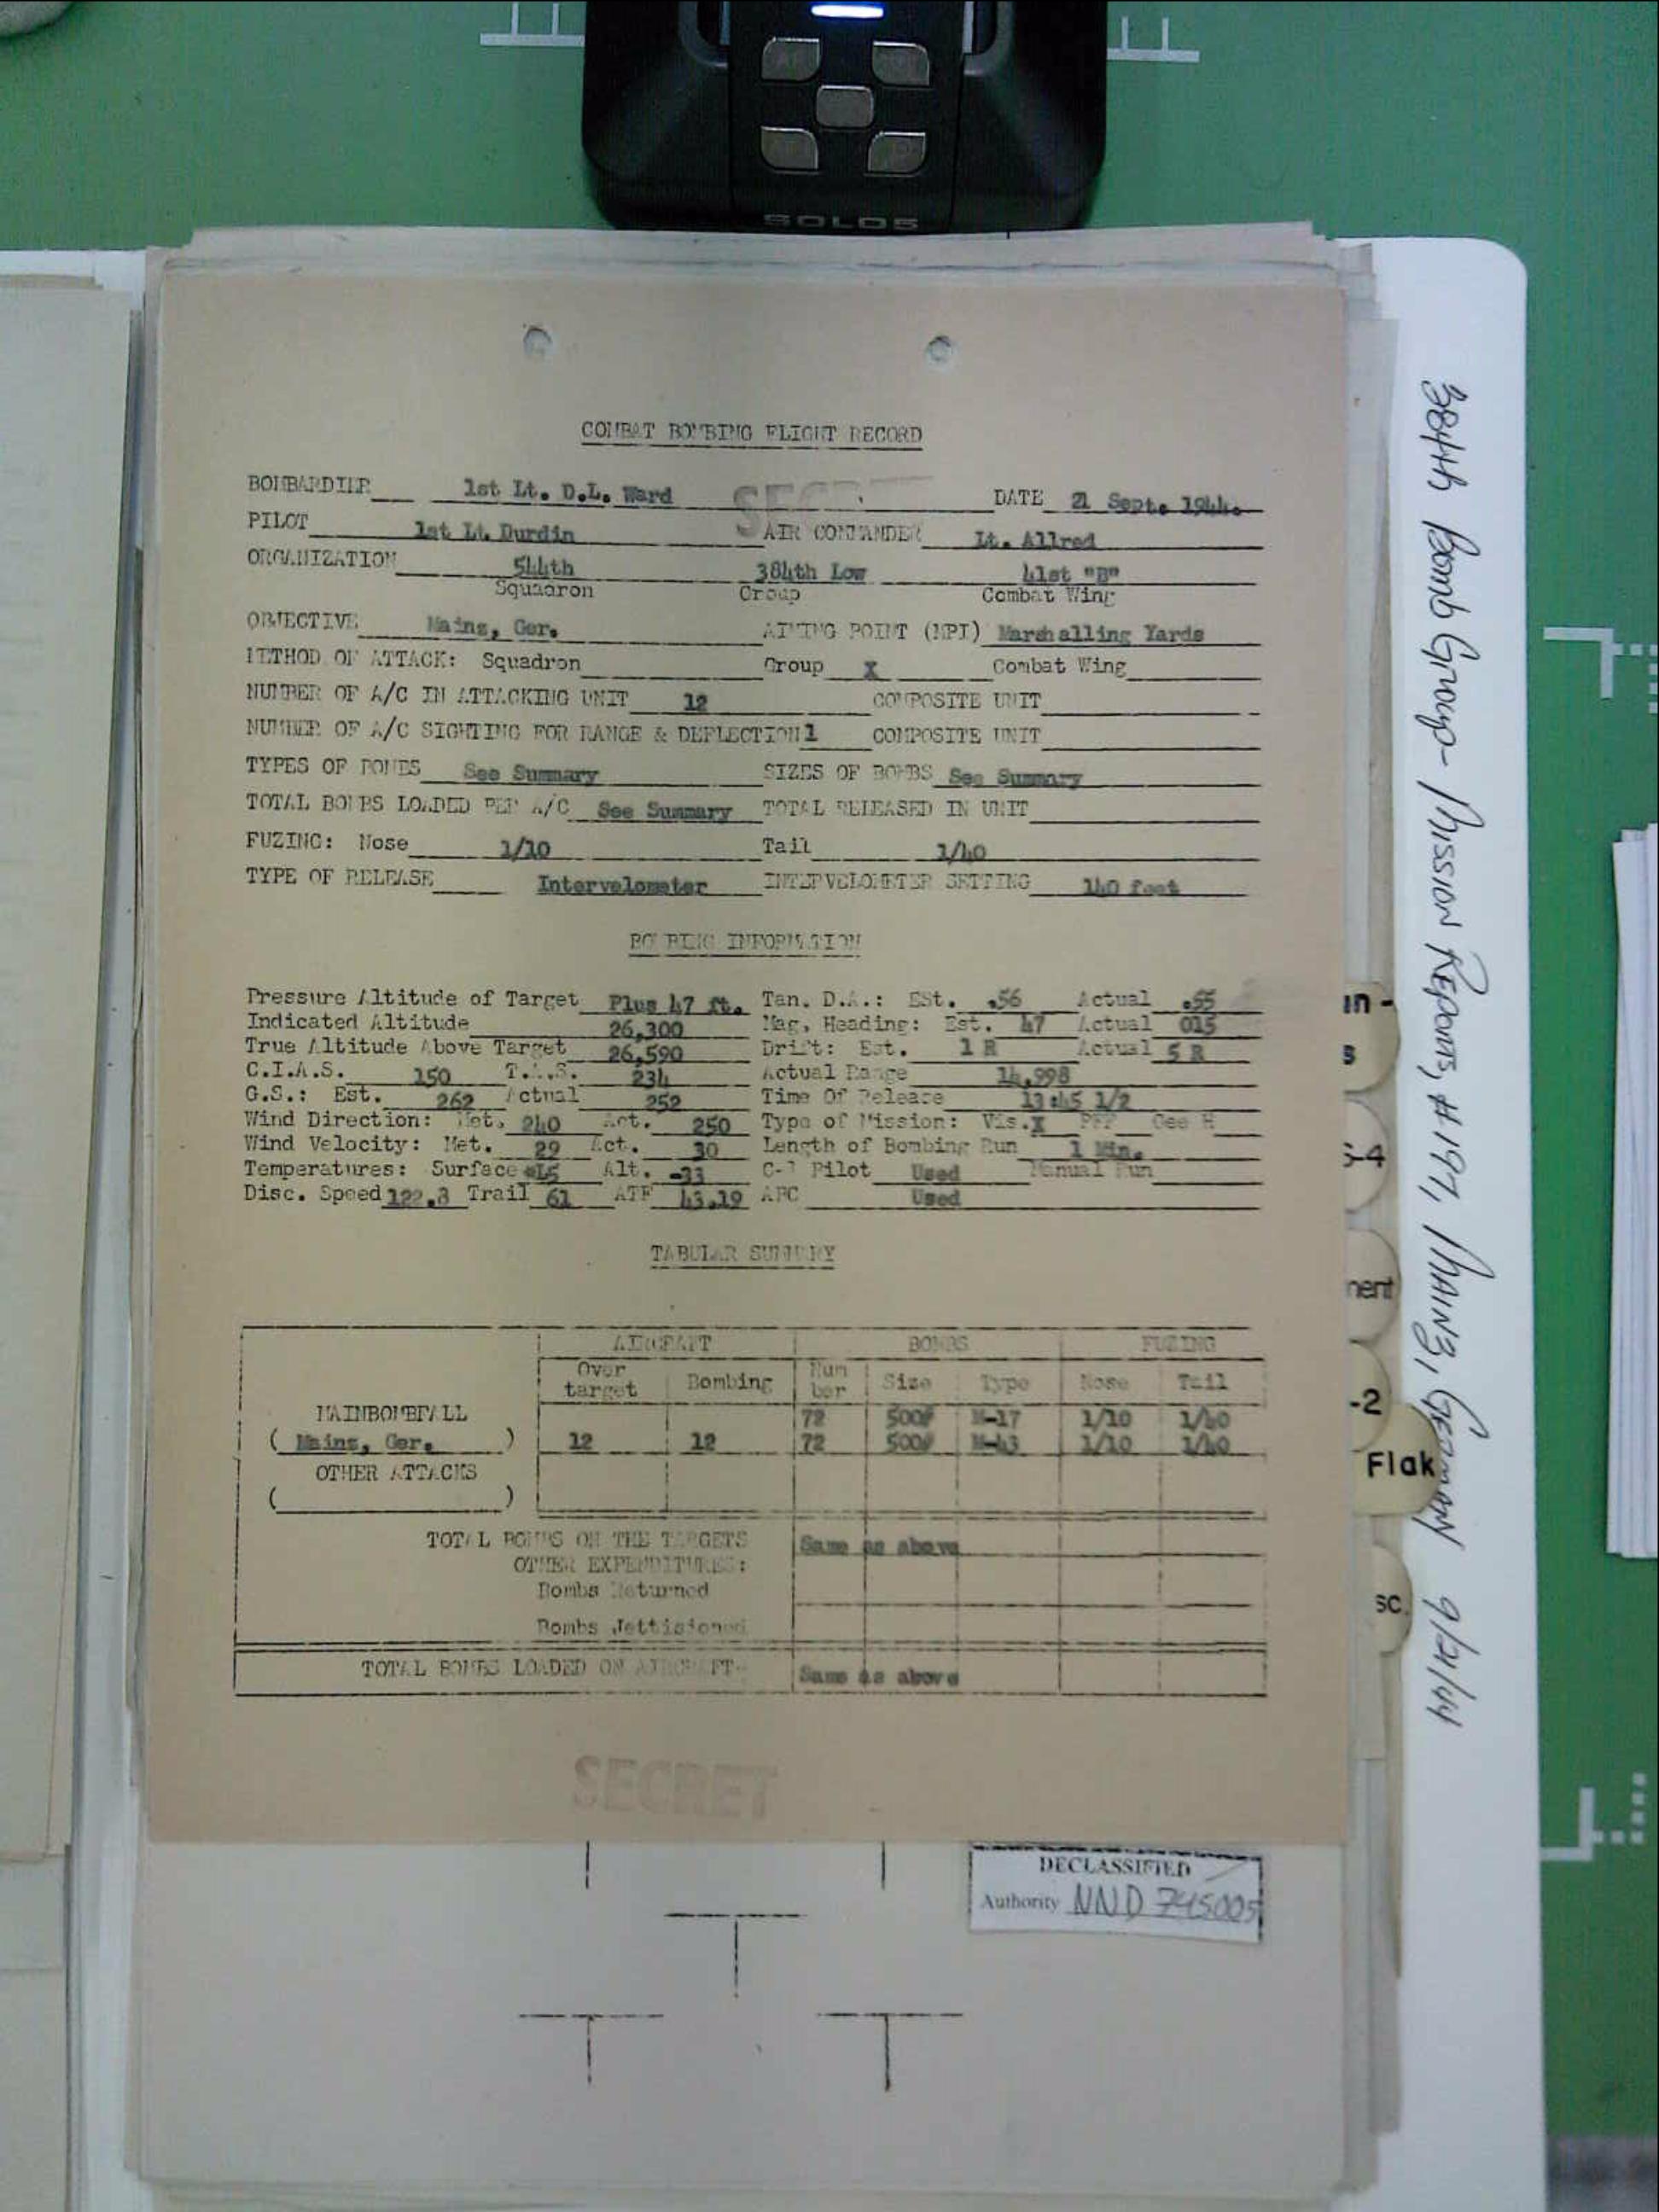 SOLO5
COMBAT BOMBING FLIGHT RECORD
BOMBARDIER 1st Lt. D.L. Ward DATE 21 Sept. 1944.
SECRET
PILOT 1st Lt. Durdin AIR COMMANDER Lt. Allred
ORGANIZATION 544th 384th Low 41st "B"
Squadron Group Combat Wing
OBJECTIVE Mainz, Ger. AIMING POINT (MPI) Marshalling Yards
METHOD OF ATTACK: Squadron Group X Combat Wing
NUMBER OF A/C IN ATTACKING UNIT 12 COMPOSITE UNIT
NUMBER OF A/C SIGHTING FOR RANGE & DEFLECTION 1 COMPOSITE UNIT
TYPES OF BOMBS See Summary SIZES OF BOMBS See Summary
TOTAL BOMBS LOADED PER A/C See Summary TOTAL RELEASED IN UNIT
FUZING: Nose 1/10 Tail 1/40
TYPE OF RELEASE Intervelometer INTERVELOMETER SETTING 140 feet
BOMBING INFORMATION
Pressure Altitude of Target Plus 47 ft. Tan. D.A.: Est. .56 Actual .55
Indicated Altitude 26,300 Mag. Heading: Est. 47 Actual 015
True Altitude Above Target 26,590 Drift: Est. 1 R Actual 5 R
C.I.A.S. 150 T.A.S. 234 Actual Range 14,998
G.S.: Est. 262 Actual 252 Time Of Release 13:45 1/2
Wind Direction: Met. 240 Act. 250 Type of Mission: Vis. X PFF Gee H
Wind Velocity: Met. 29 Act. 30 Length of Bombing Run 1 Min.
Temperatures: Surface Alt. -33 C-1 Pilot Used Manual Run
Disc. Speed 122.8 Trail 61 ATF 43.19 AFC Used
TABULAR SUMMARY
AIRCRAFT BOMBS FUZING
Over target Bombing Number Size Type Nose Tail
MAINBOMBFALL 72 500# M-17 1/10 1/40
( Mainz, Ger. ) 12 12 72 500# M-43 1/10 1/40
OTHER ATTACKS
( )
TOTAL BOMBS ON THE TARGETS Same as above
OTHER EXPENDITURES:
Bombs Returned
Bombs Jettisioned
TOTAL BOMBS LOADED ON AIRCRAFT Same as above
SECRET
DECLASSIFIED
Authority NND 745005
384th Bomb Group- Mission Reports, #197, Mainz, Germany 9/21/44
-4
-2
Flak